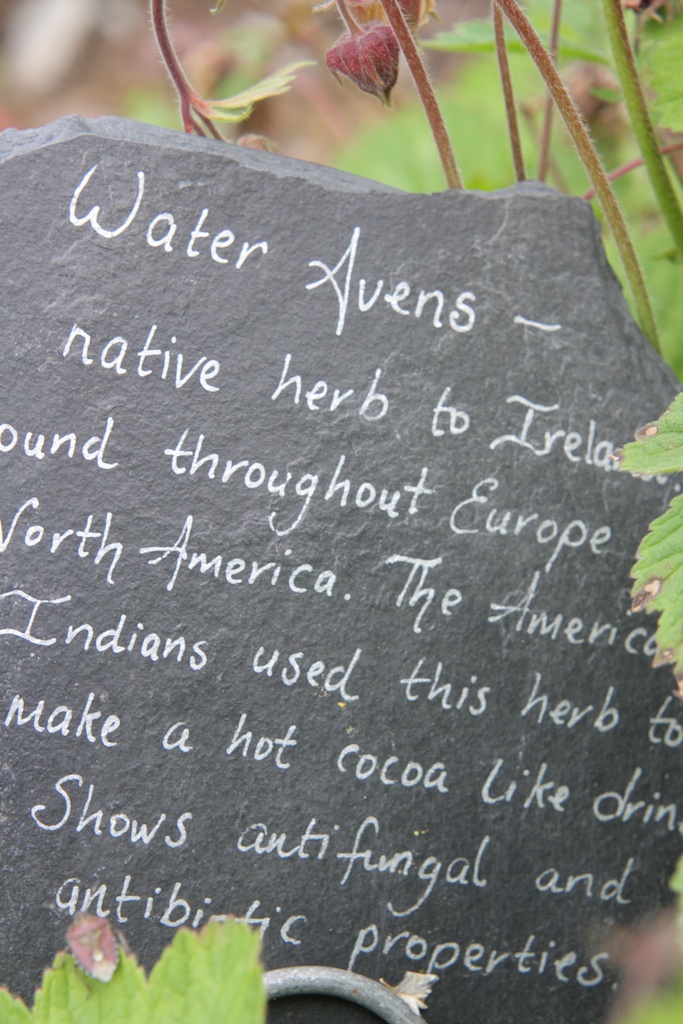 Water Avens –
native herb to Irela
ound throughout Europe
North America. The America
Indians used this herb to
make a hot cocoa like drin
Shows antifungal and
antibiotic properties.